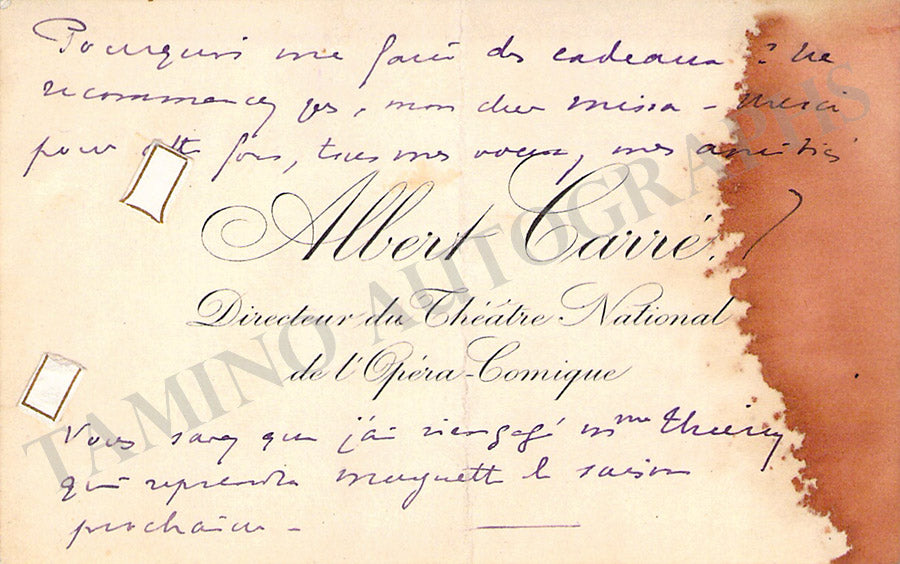 Pourquoi me faire des cadeaux ? Ne
recommencez pas, mon cher Missa - Merci
pour cette fois, tous mes voeux, mes amitiés
Albert Carré
Directeur du Théâtre National
de l'Opéra-Comique
Vous savez que j'ai réengagé Mme Thiéry
qui reprendra Muguette la saison
prochaine -
TAMINO AUTOGRAPHS